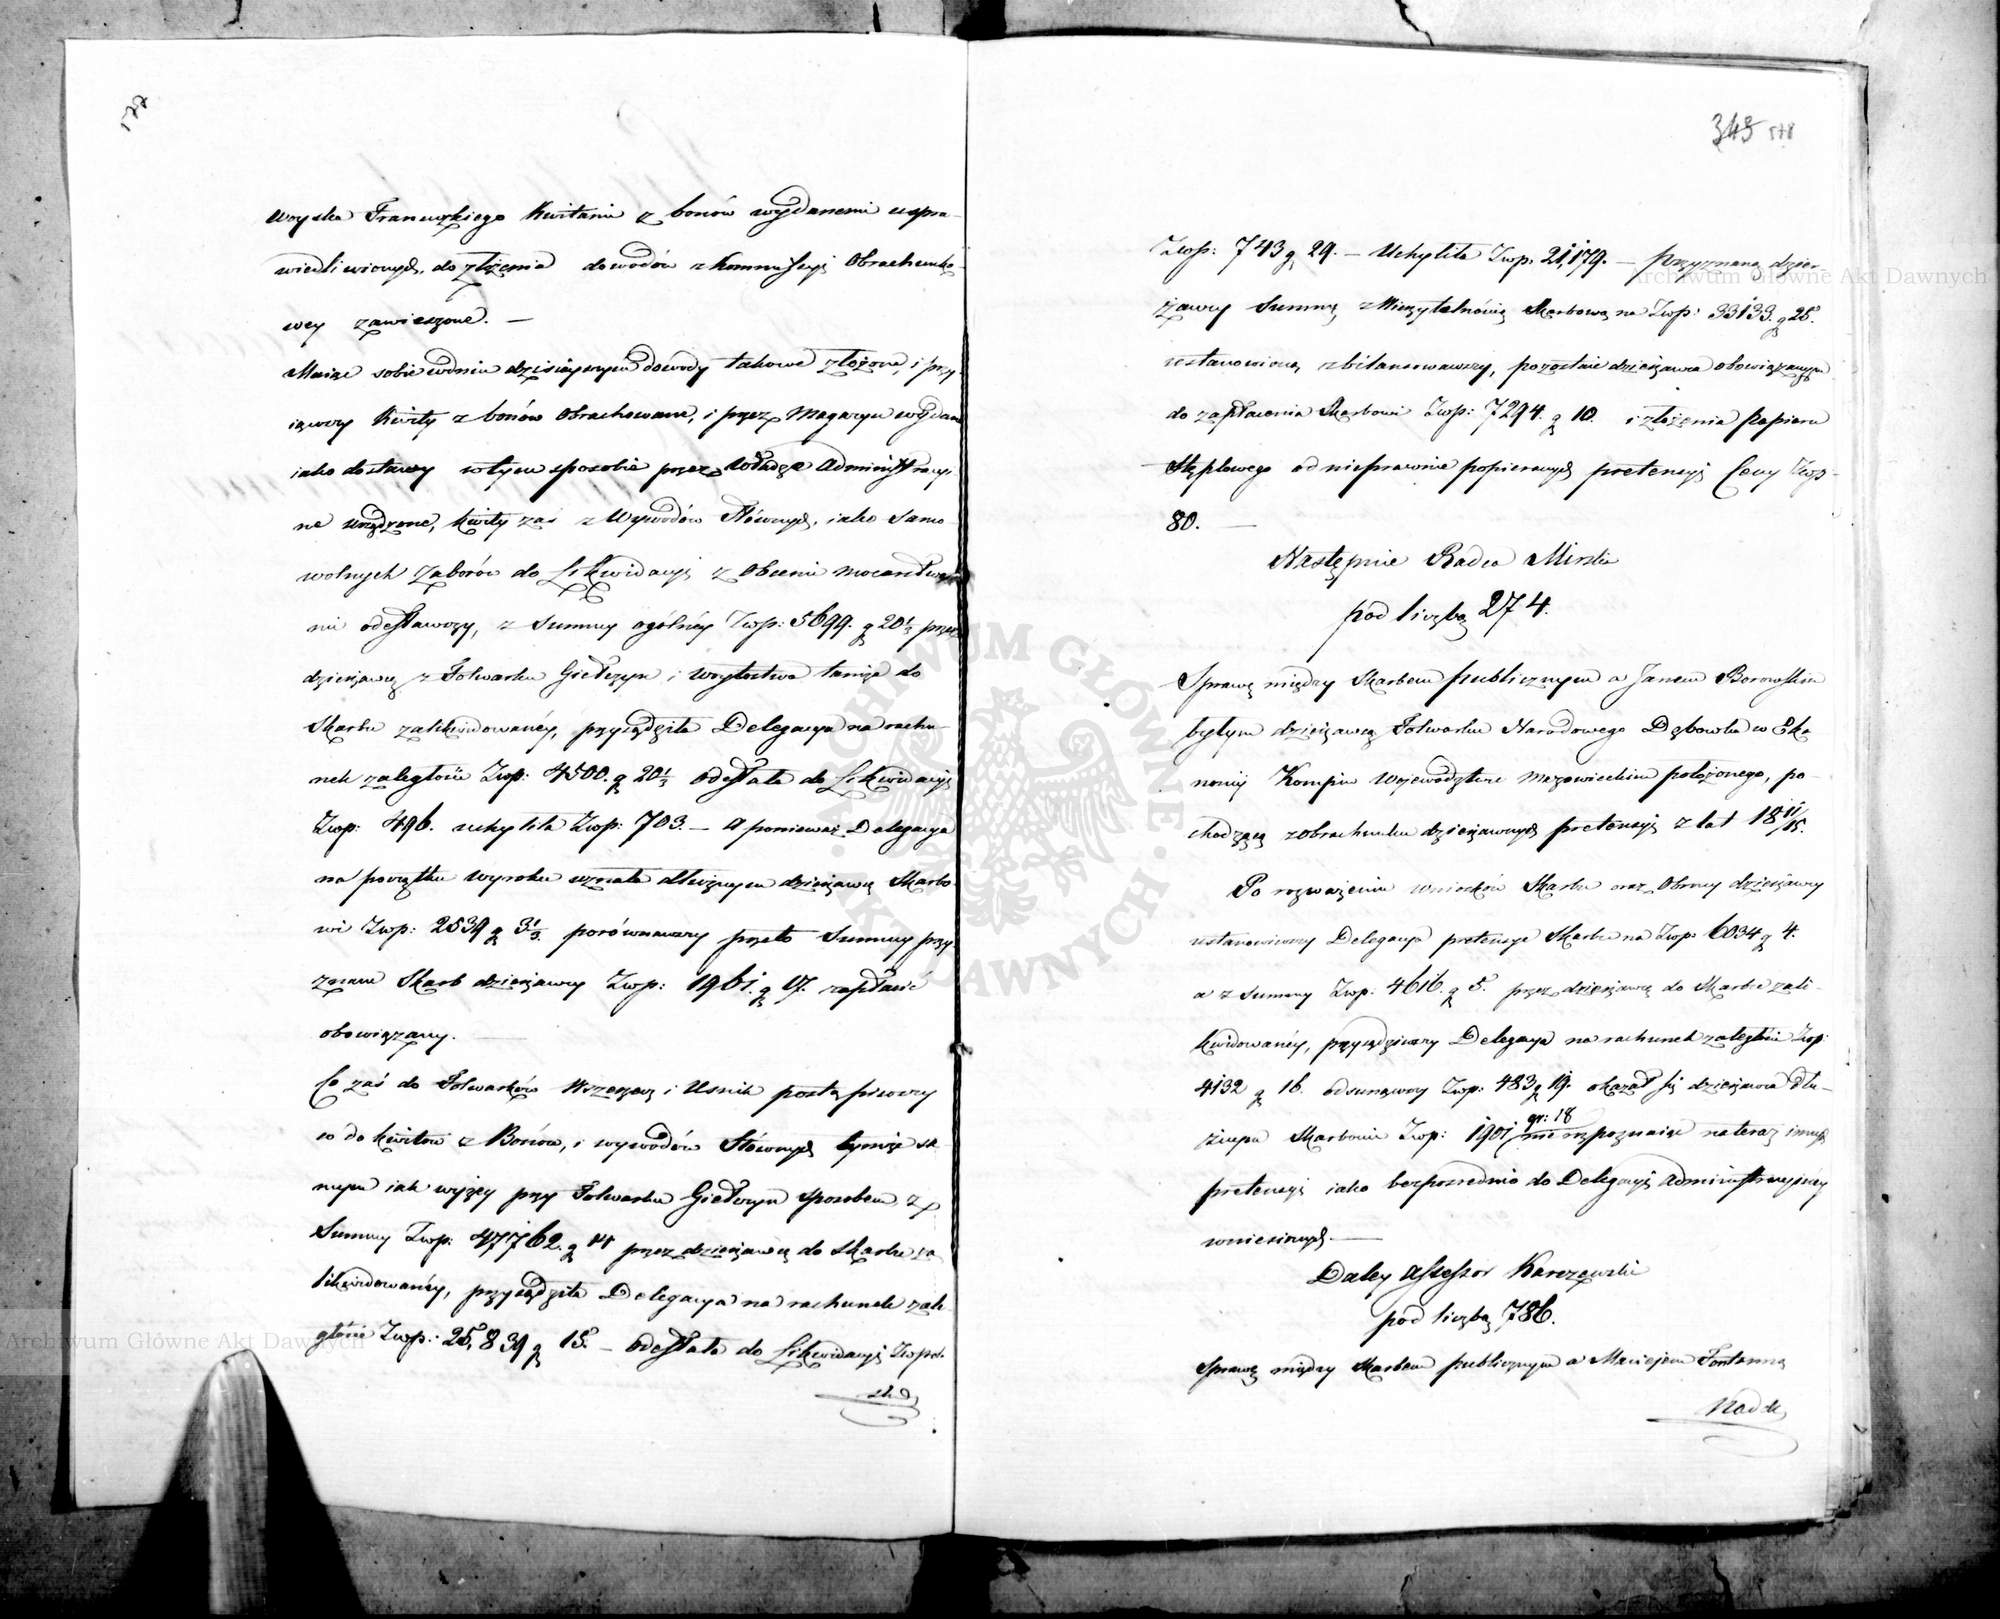 577
woyska Francuzkiego Kwitami z bonów wydanemi uspra-
wiedliwionych, do złożenia dowodów z Kommissyi Obrachunko-
wey zawieszone. —
Maiąc sobie w dniu dzisieyszym dowody takowe złożone, i przy
iąwszy Kwity z bonów obrachowane, i przez Magazyn wydane
iako dostawy w tym sposobie przez Władze Administracyi-
ne urządzone, kwity zaś z Wywodów Słownych, iako samo
wolnych zaborów do Likwidacyi z Obcemi mocarstwa-
mi odesławszy, z Summy ogólnéy Złwp: 5699. g 20⅓ przez
dzierżawcę z Folwarku Giełczyn i Woytostwa tamże do
Skarbu zalikwidowanéy, przysądziła Delegacya na rachu-
nek zaległości Złwp: 4500. g 20⅓ odesłała do Likwidacyi
Złwp: 496. uchyliła Złwp: 703. — A ponieważ Delegacya
na początku wyroku uznała dłużnym dzierżawcę Skarbo-
wi Złwp: 2539 g 3⅓. porównawszy przeto Summy przy
znane Skarb dzierżawcy Złwp: 1961. g 17. zapłacić
obowiązany. —
Co zaś do Folwarków Wszerzecz i Usnik postąpiwszy
co do kwitów z Bonów, i wywodów Słownych tymże sa-
mym iak wyżey przy Folwarku Giełczyn sposobem, z
Summy Złwp: 47762. g 14 przez dzierżawcę do Skarbu za
likwidowanéy, przysądziła Delegacya na rachunek zale-
głości Złwp: 25,839 g 15. — odesłała do Likwidacyi Złwpol.
345 578
Złwp: 743 g 29. — Uchyliła Złwp. 21,179. — przyznaną dzier-
żawcy Summę z Wierzytelnością Skarbową na Złwp: 33133. g 25.
ustanowioną zbilansowawszy, pozostaie dzierżawca obowiązanym
do zapłacenia Skarbowi Złwp: 7294. g 10. i złożenia Papieru
Stęplowego od niesprawnie popieranych pretensyi Ceny Złwp.
80. —
Następnie Radca Mirski
pod liczbą 274.
Sprawę między Skarbem publicznym a Janem Borowskim
byłym dzierżawcą Folwarku Narodowego Dębowka w Eko
nomij Kampin Województwie Mazowieckim położonego, po-
chodzącą z obrachunku dzierżawnych pretensyi z lat 18 11/15.
Po rozważeniu wniosków Skarbu oraz Obrony dzierżawcy
ustanowiwszy Delegacya pretensye Skarbu na Złwp. 6034 g 4.
a z Summy Złwp: 4616. g 5. przez dzierżawcę do Skarbu zali-
kwidowanéy, przysądziwszy Delegacya na rachunek zaległości Złwp:
4132 g 16. odsunąwszy Złwp: 483 g 19. okazał się dzierżawca dłu-
żnym Skarbowi Złwp: 1901 gr: 18 nie rozpoznaiąc na teraz innych
pretensyi iako bezpośrednio do Delegacyi Administracyinéy
wniesionych. —
Daley Assessor Karczewski
pod liczbą 786.
Sprawę między Skarbem publicznym a Maciejem Fontanną
Archiwum Główne Akt Dawnych
ARCHIWUM GŁÓWNE AKT DAWNYCH
Archiwum Główne Akt Dawnych